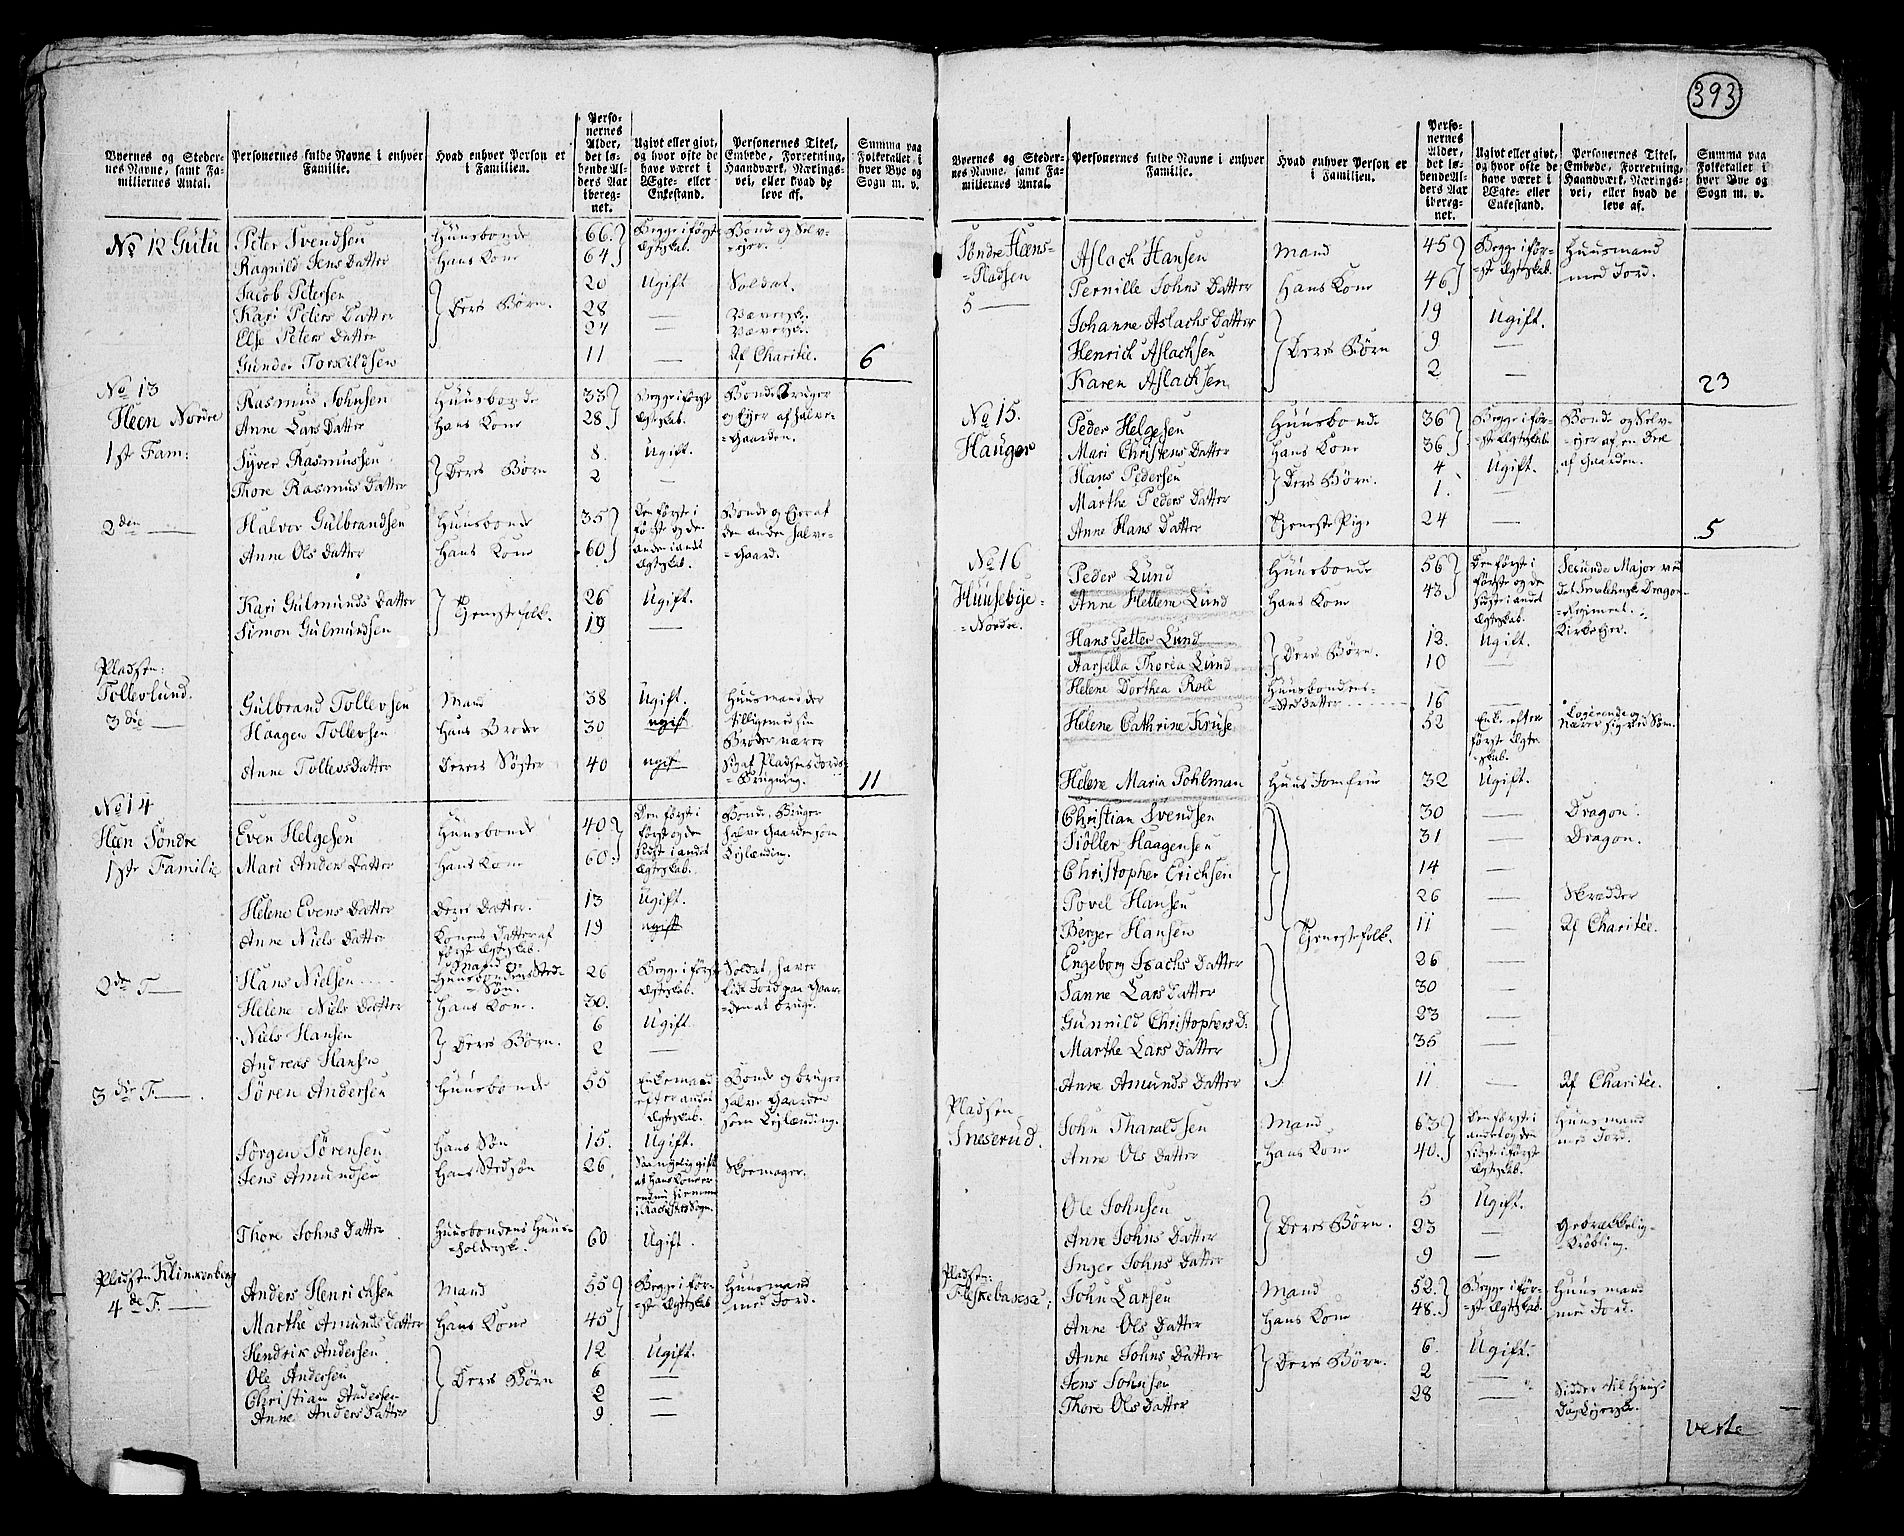 393
Byernes og Steder-
nes Navne, samt Fa-
miliernes Antal.
Personernes fulde Navne i enhver
Familie.
Hvad enhver Person er
i Familien.
Perso-
nernes
Alder,
det lø-
bende Al-
ders Aar
iberegnet.
Ugivt eller givt,
og hvor ofte de
have været i
Ægte- eller
Enkestand.
Personernes Titel,
Embede, Forretning,
Haandværk, Nærings-
vei, eller hvad de
leve af.
Summa paa
Folketallet i
hver Bye og
Sogn m. v.
No 12 Gutu
Peter Svendsen Huusbonde 66 Begge i første Bonde og Selv-
Ragnild Jens Datter Hans Kone 64 Ægteskab. ejer.
Jacob Petersen 20 Ugift Soldat.
Kari Peters Datter Deres Børn. 28 —
Else Peters Datter 24 —
Gunder Torkildsen 11 — Af Charitie. 6
No 13
Heen Nordre
1ste Fam:
Rasmus Johnsen Huusbonde 33 Begge i først Bonde Bruger
Anne Lars Datter Hans Kone 28 Ægteskab. og Ejer af halve-
Gaarden.
Syver Rasmussen Deres Børn 8 Ugift.
Thore Rasmus Datter 2 —
2den —
Halvor Gulbrandsen Huusbonde 35 Den første i Bonde og Ejer af
første og den den anden halve-
Anne Ols Datter Hans Kone 60 anden i andet Gaard.
Ægteskab.
Kari Gulmunds Datter Tjenestefolk. 26 Ugift.
Simon Gulmundsen 19 —
Pladsen:
Tollevlund.
3die —
Gulbrand Tollevsen Mand 38 Ugift. Huusmand der
Haagen Tollevsen Hans Broder 30 ugift tilligemed sin
Broder nærer
Anne Tollevsdatter Deres Søster 40 ugift sig af Pladsens Jords-
Brugning. 11
No 14
Heen Søndre
1ste Familie
Even Helgesen Huusbonde 40 Den først i Bonde, Bruger
først og den halve Gaarden som
Mari Anders Datter Hans Kone 60 sidst i andet Lejlending.
Ægteskab.
Helene Evens Datter Deres Datter. 13 Ugift.
Anne Niels Datter Konens Datter af 19 ugift
første Ægteskab.
2den F —
Hans Nielsen Mand og 26 Begge i først Soldat, haver
Huusbondens Sted-
Søn. Ægteskab. lidt Jord paa Gaar-
Helene Niels Datter Hans Kone. 30. den at bruge.
Niels Hansen Deres Børn. 6 Ugift
Andreas Hansen 2 —
3die F. —
Søren Andersen Huusbonde 55 Enkemand Bonde og bruger
efter andet halve Gaarden
Ægteskab. som Lejlending.
Jørgen Sørensen Hans Søn 15. Ugift.
Jens Amundsen Hans Stedsøn 26 Skoemager.
Thore Johns Datter Huusbondens Huus- 60 Ugift
holderske.
Pladsen Klinkenberg
4de F. —
Anders Henrichsen Mand 55 Begge i før- Huusmand
Marthe Amunds Datter Hans Kone 45 ste Ægteskab med Jord.
Hendrik Andersen 12 Ugift.
Ole Andersen Deres Børn 6 —
Christian Andersen 2 —
Anne Anders Datter 9 —
Byernes og Steder-
nes Navne, samt Fa-
miliernes Antal.
Personernes fulde Navne i enhver
Familie.
Hvad enhver Person er
i Familien.
Perso-
nernes
Alder,
det lø-
bende Al-
ders Aar
ibereg-
net.
Ugivt eller givt,
og hvor ofte de
have været i
Ægte- eller
Enkestand.
Personernes Titel,
Embede, Forretning,
Haandværk, Nærings-
vei, eller hvad de
leve af.
Summa paa
Folketallet i
hver Bye og
Sogn m. v.
Søndre Heens-
Pladsen
5 —
Aslach Hansen Mand 45 Begge i før- Huusmand
Pernille Johns Datter Hans Kone 46 ste Ægteskab. med Jord.
Johanne Aslachs Datter 19 Ugift.
Henrich Aslachsen Deres Børn 9 —
Karen Aslachsen 2 — 23
No 15.
Hauger
Peder Helgesen Huusbonde 36 Begge i før- Bonde og Selv-
Mari Christens Datter Hans Kone 36 ste Ægteskab. ejer af en Deel
Hans Pedersen Deres Børn. 4 Ugift. af Gaarden.
Marthe Peders Datter 1. —
Anne Hans Datter Tjeneste Pige 24 — 5
No 16
Huusebye-
Nordre.
Peder Lund Huusbonde 56 Den først i Secunde Major ved
første og den det Smålehnske Dragon-
Anne Hellene Lund Hans Kone 43 sidste i andet Regiment.
Ægteskab. Kirkeejer.
Hans Petter Lund Deres Børn. 12. Ugift.
Aarsella Thorea Lund 10 —
Helene Dorthea Roll Huusbondens- 16
Steddatter
Helene Cathrine Kruse 52 Enke efter Logerende og
første Ægte- Nærer sig ved Søm.
skab.
Helene Maria Pohlman Huus Jomfrue 32 Ugift.
Christian Svendsen 30 — Dragon.
Siöller Haagensen 31 — Dragon.
Christopher Erichsen 14 —
Povel Hansen 26 — Skredder
Berger Hansen Tjenestefolk. 11 — Af Charitée.
Engeborg Isachs Datter 26 —
Sanne Lars Datter 30 —
Gunnild Christophers D: 23 —
Marthe Lars Datter 35 —
Anne Amunds Datter 11 — Af Charitée.
Pladsen
Sneserud.
John Tharaldsen Mand 63 Den først i Huusmand
andet og den med Jord.
Anne Ols Datter Hans Kone 40. sidste i først
Ægteskab.
Ole Johnsen 5 Ugift.
Anne Johns Datter Deres Børn. 23 — Gebrækkelig-
Krøbling.
Inger Johns Datter 9 —
Pladsen:
John Larsen Mand 52. Begge i før- Huusmand
Anne Ols Datter Hans Kone 48. ste Ægteskab. med Jord.
Anne Johns Datter Deres Børn. 6. Ugift.
Jens Johnsen 2 —
Thore Ols Datter 28 — Sidder til Huus
verte